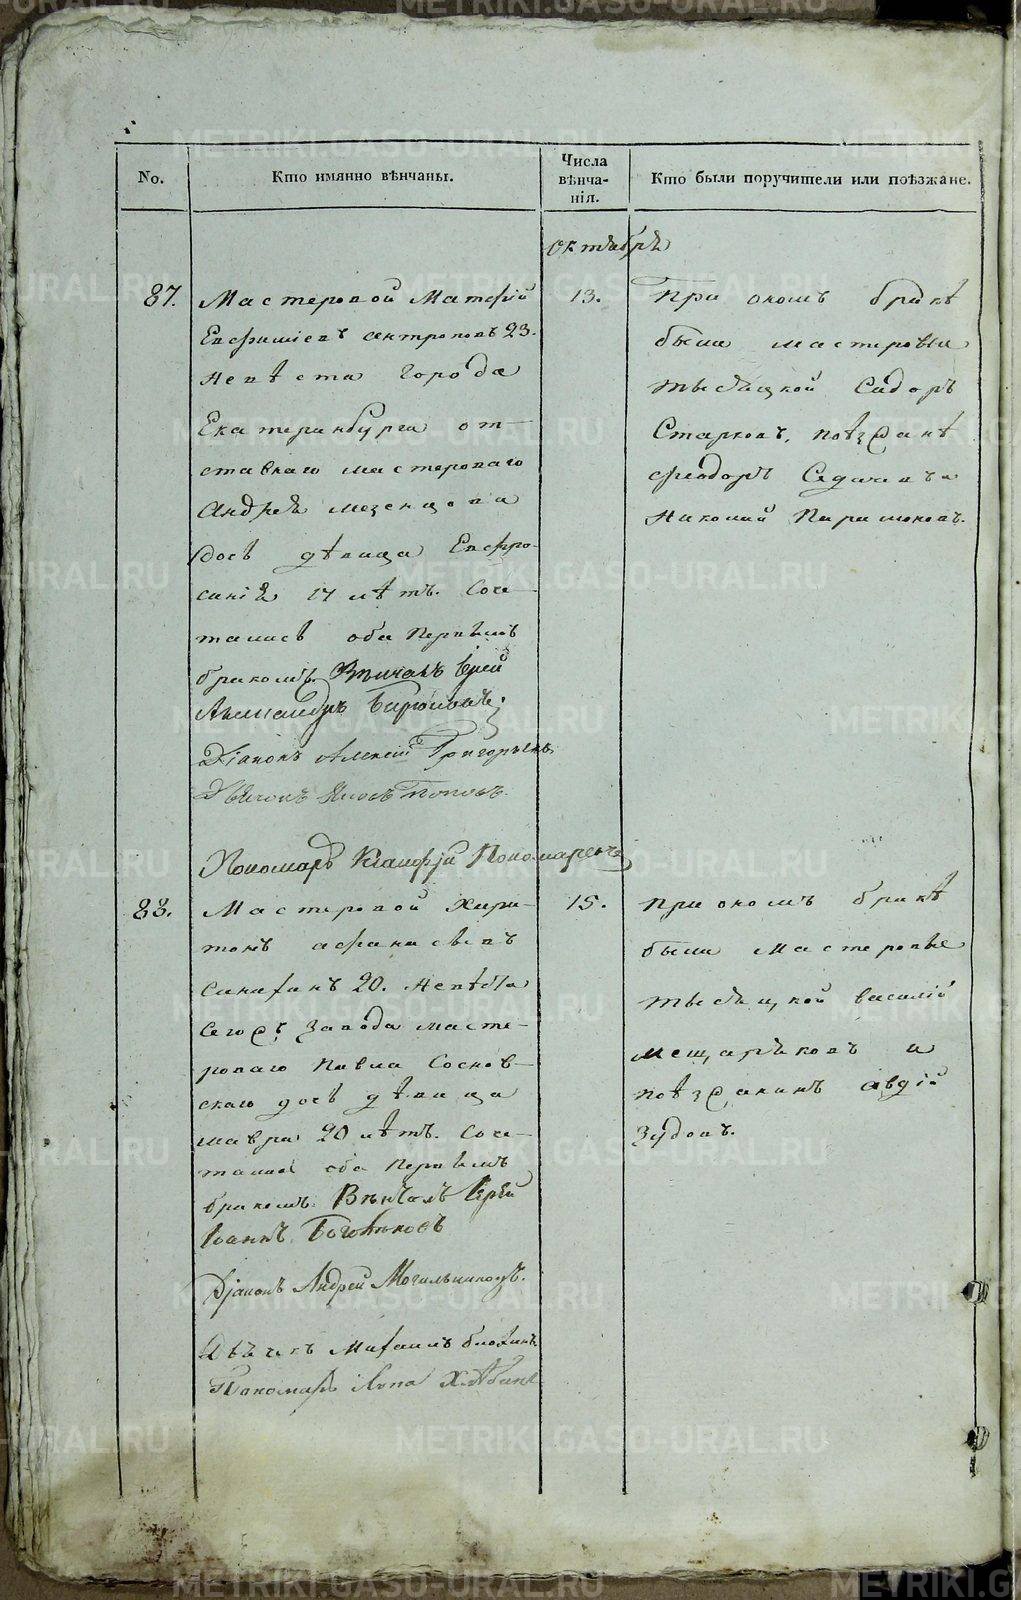 No.
Кто имянно вѣнчаны.
Числа
вѣнча-
нія.
Кто были поручители или поѣзжане.
октября
87.
Мастеровой Матфій
Евфиміевъ Антроповъ 23.
Невѣста города
Екатеринбурга от-
ставнаго мастероваго
Андрея Мезенцова
дочь дѣвица Евфро-
синія 17 лѣтъ. Соче-
тались оба первымъ
бракомъ. Вѣнчалъ Іерей
Александръ
Діаконъ Алексій Григорьевъ
Дьячокъ Яковъ Поповъ.
Пономарь Пономаревъ
13.
При ономъ бракѣ
были мастеровые
тысяцкой Сидоръ
Старковъ, поѣзжанѣ
Феодоръ
Николай
88.
Мастеровой Хари-
тонъ Афанасьевъ
20. Невѣста
сегожъ завода масте-
роваго Павла Соснов-
скаго дочь дѣвица
Мавра 20 лѣтъ. Соче-
тались оба первымъ
бракомъ. Вѣнчалъ Іерей
Іоаннъ
Діаконъ Андрей Могильниковъ.
Дьячекъ Михаилъ Блохинъ
Пономарь
15.
При ономъ бракѣ
были мастеровые
тысяцкой Василій
Мещеряковъ и
поѣзжанинъ Авдій
Зудовъ.
METRIKI.GASO-URAL.RU